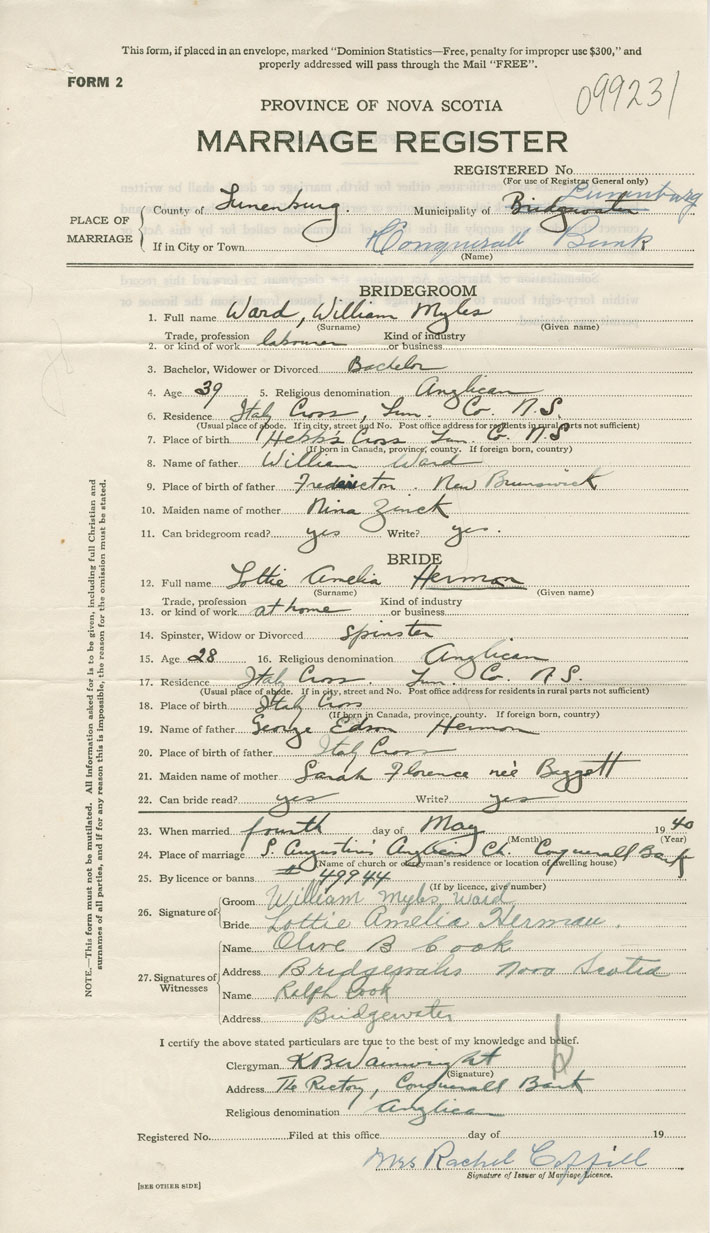 This form, if placed in an envelope, marked "Dominion Statistics—Free, penalty for improper use $300," and
properly addressed will pass through the Mail "FREE".
FORM 2
099231
PROVINCE OF NOVA SCOTIA
MARRIAGE REGISTER
REGISTERED No.
(For use of Registrar General only)
Lunenburg
PLACE OF MARRIAGE
County of Lunenburg. Municipality of Bridgewater
If in City or Town Conquerall Bank
(Name)
BRIDEGROOM
1. Full name Ward, William Myles
(Surname) (Given name)
2. Trade, profession or kind of work labourer Kind of industry or business
3. Bachelor, Widower or Divorced Bachelor
4. Age 39 5. Religious denomination Anglican
6. Residence Italy Cross, Lun. Co. N.S.
(Usual place of abode. If in city, street and No. Post office address for residents in rural parts not sufficient)
7. Place of birth Hebb's Cross Lun. Co. N.S
(If born in Canada, province, county. If foreign born, country)
8. Name of father William Ward
9. Place of birth of father Fredericton. New Brunswick
10. Maiden name of mother Nina Zinck
11. Can bridegroom read? yes Write? yes.
BRIDE
12. Full name Lottie Amelia Hermon
(Surname) (Given name)
13. Trade, profession or kind of work at home Kind of industry or business
14. Spinster, Widow or Divorced Spinster
15. Age 28 16. Religious denomination Anglican
17. Residence Italy Cross. Lun. Co. N.S.
(Usual place of abode. If in city, street and No. Post office address for residents in rural parts not sufficient)
18. Place of birth Italy Cross
(If born in Canada, province, county. If foreign born, country)
19. Name of father George Edson Hermon
20. Place of birth of father Italy Cross
21. Maiden name of mother Sarah Florence neé
22. Can bride read? yes Write? yes
23. When married fourth day of May 1940
(Month) (Year)
24. Place of marriage S. Augustine's Anglican Ch. Conquerall Bank
(Name of church or clergyman's residence or location of dwelling house)
25. By licence or banns # 49944
(If by licence, give number)
26. Signature of
Groom William Myles Ward
Bride Lottie Amelia Herman.
27. Signatures of Witnesses
Name Olive B Cook
Address Bridgewater Nova Scotia
Name Ralph Cook
Address Bridgewater
I certify the above stated particulars are true to the best of my knowledge and belief.
Clergyman K B Wainwright
(Signature)
Address The Rectory, Conquerall Bank
Religious denomination Anglican
Registered No. Filed at this office day of 19
Mrs Rachel Coffill
Signature of Issuer of Marriage Licence.
[SEE OTHER SIDE]
NOTE.—This form must not be mutilated. All information asked for is to be given, including full Christian and
surnames of all parties, and if for any reason this is impossible, the reason for the omission must be stated.